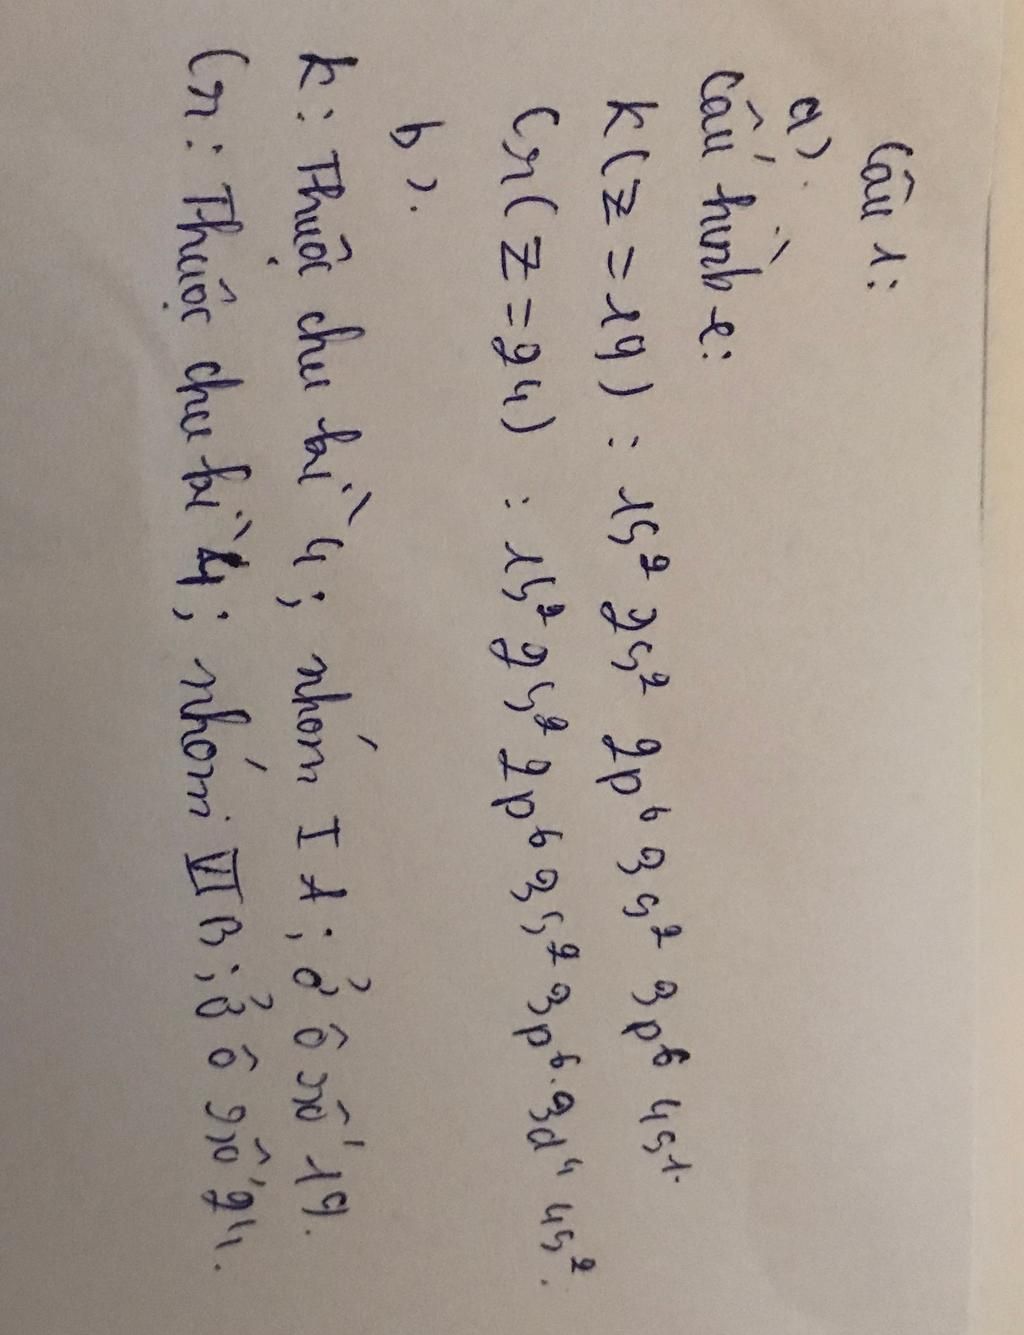 Câu 1:
a).
Cấu hình e:
K (Z = 19) : 1s² 2s² 2p⁶ 3s² 3p⁶ 4s¹.
Cr (Z = 24) : 1s² 2s² 2p⁶ 3s² 3p⁶. 3d⁴ 4s².
b).
K: Thuộc chu kì 4; nhóm I A; ở ô số 19.
Cr: Thuộc chu kì 4; nhóm VI B; ở ô số 24.